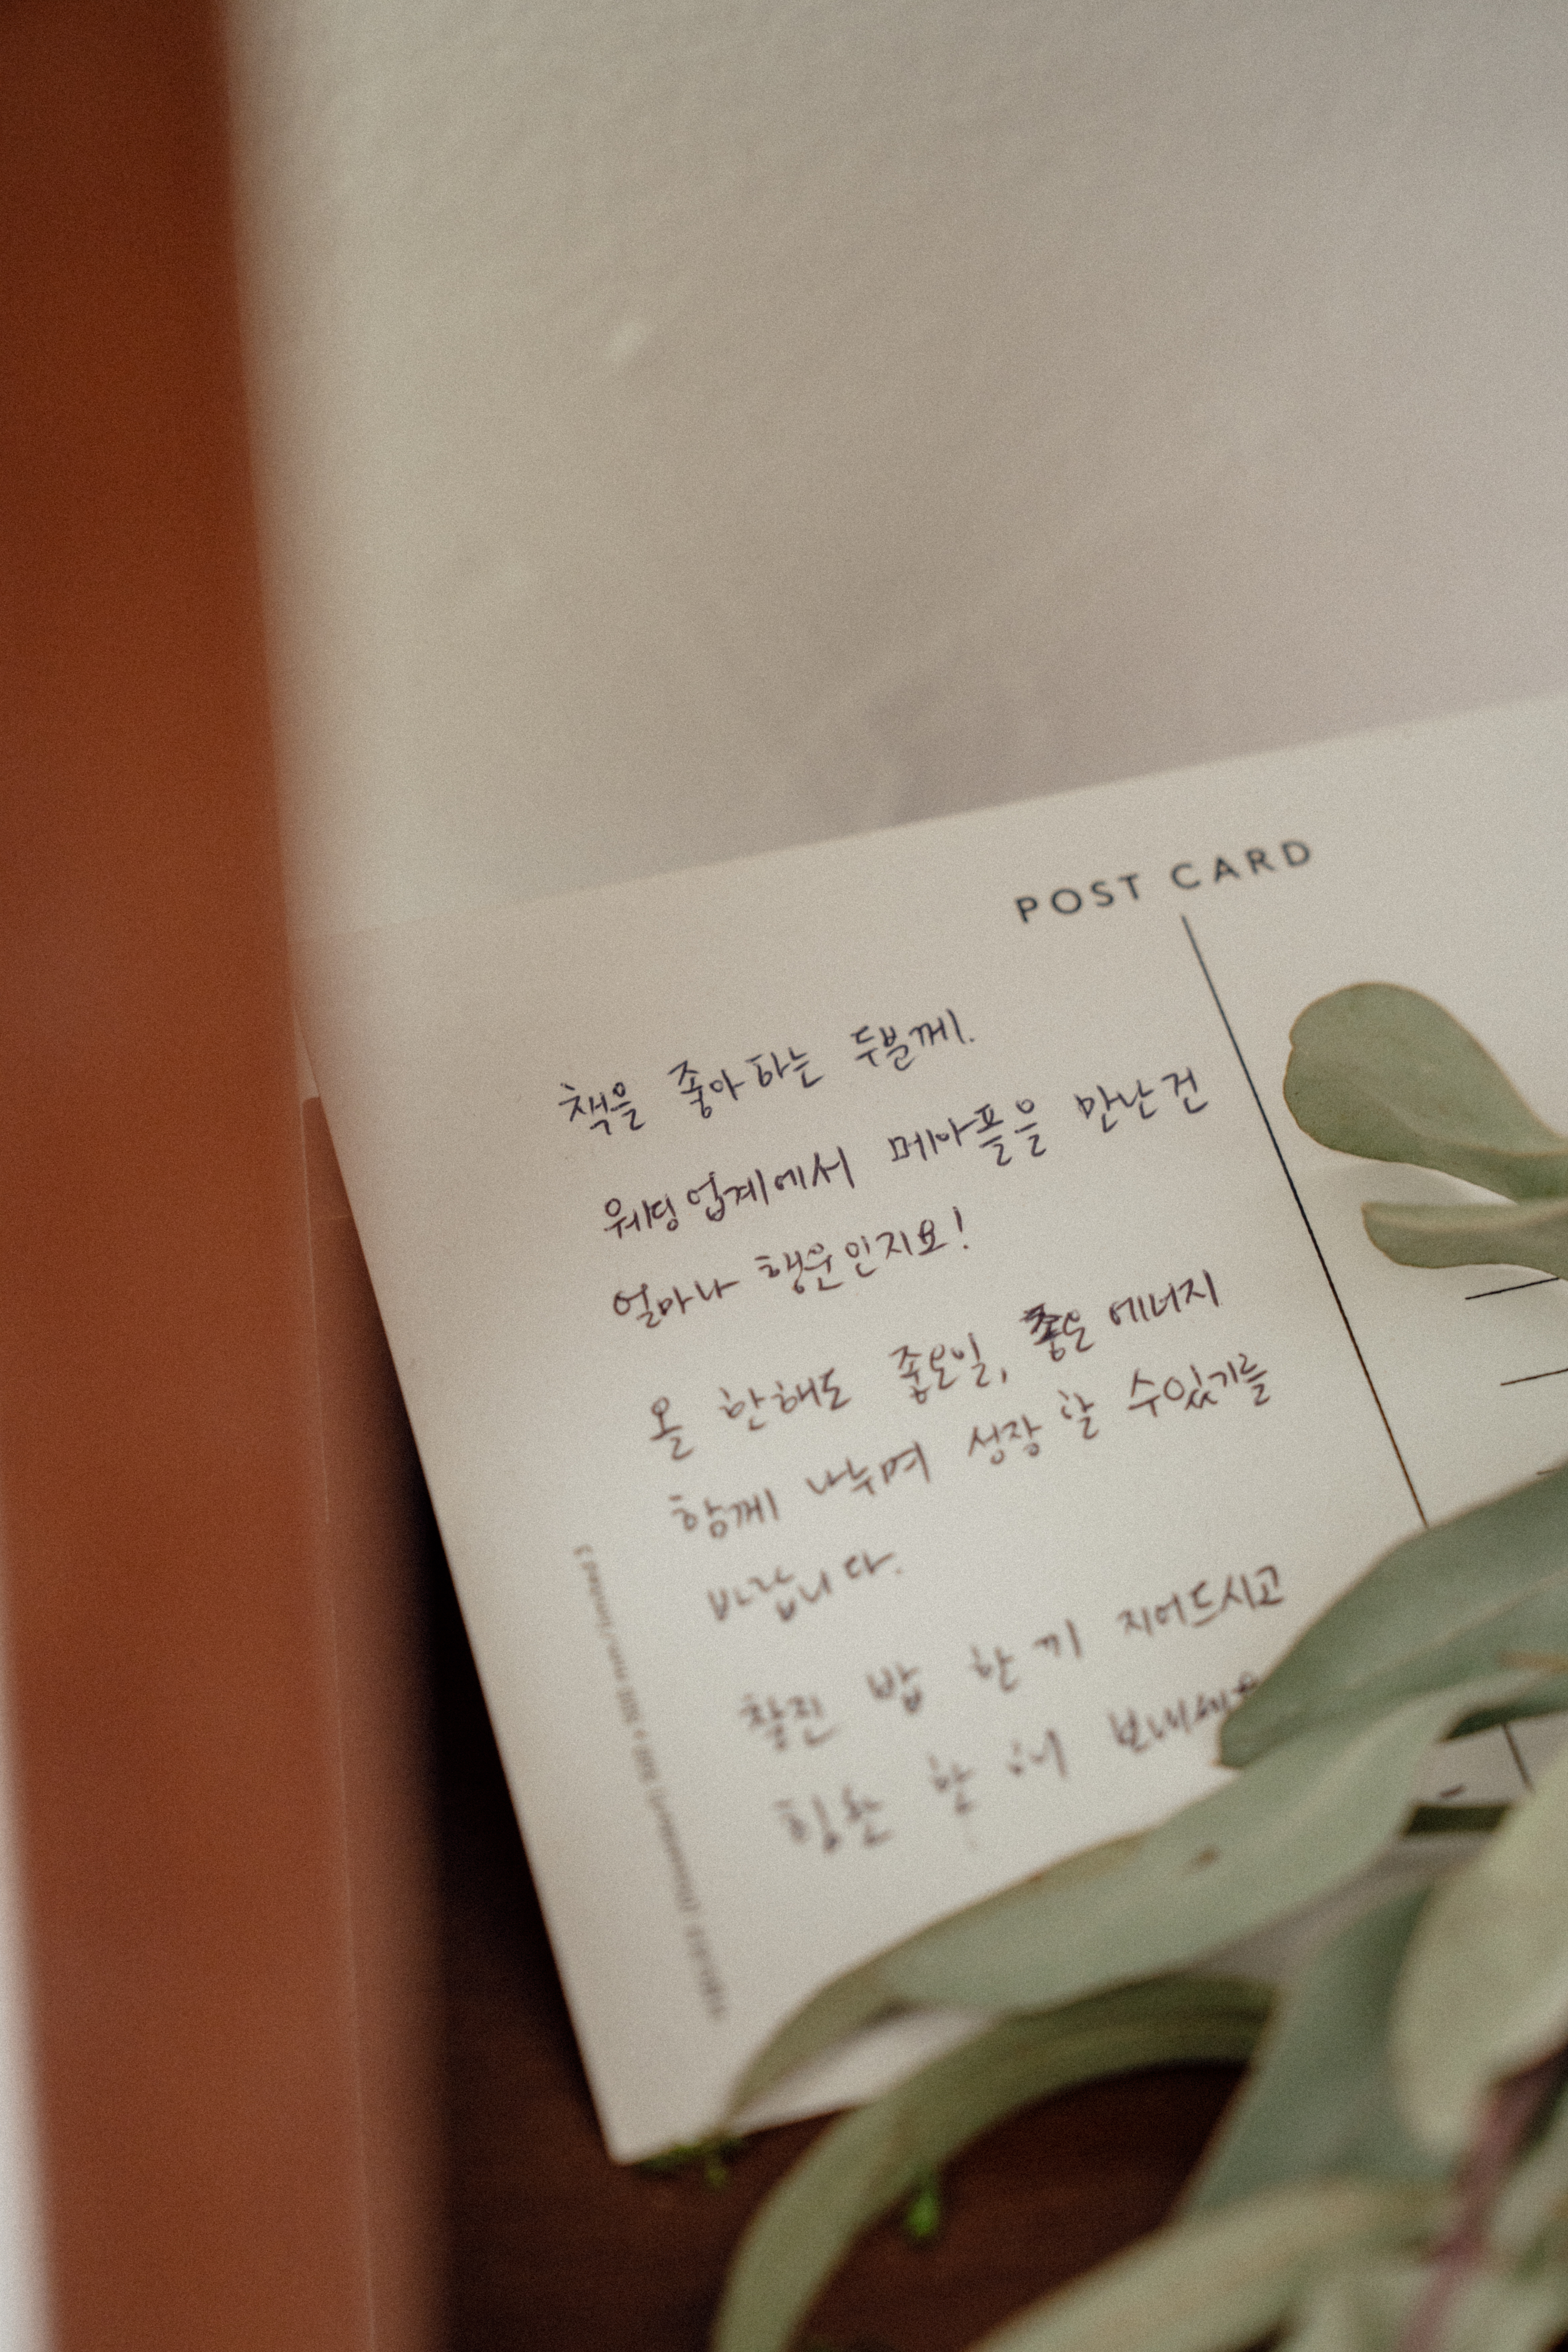 POST CARD
책을 좋아하는 두분께.
웨딩업계에서 메아플을 만난건
얼마나 행운인지요!
올 한해도 좋은일, 좋은 에너지
함께 나누며 성장 할 수있기를
바랍니다.
찰진 밥 한끼 지어드시고
힘찬 한 해 보내세요